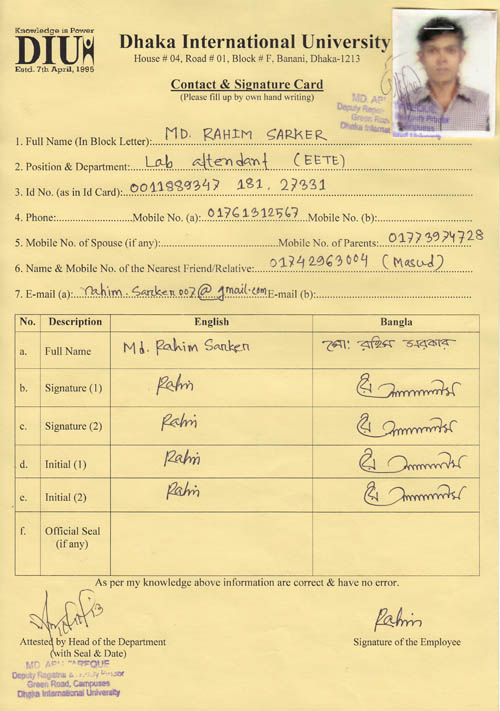 Knowledge is Power
DIU
Estd. 7th April, 1995
Dhaka International University
House # 04, Road # 01, Block # F, Banani, Dhaka-1213
Contact & Signature Card
(Please fill up by own hand writing)
Deputy Registrar & Deputy Proctor
Green Road, Campuses
Dhaka International
1. Full Name (In Block Letter): MD. RAHIM SARKER
2. Position & Department: Lab attendant (EETE)
3. Id No. (as in Id Card): 0011889347 181, 27331
4. Phone: Mobile No. (a): 01761312567 Mobile No. (b):
5. Mobile No. of Spouse (if any): Mobile No. of Parents: 01773974728
6. Name & Mobile No. of the Nearest Friend/Relative: 01742963004 (Masud)
7. E-mail (a): rahim.sarker007@gmail.com E-mail (b):
No. Description English Bangla
a. Full Name Md. Rahim Sarker মো: রহিম সরকার
b. Signature (1) Rahim
c. Signature (2) Rahim
d. Initial (1) Rahim
e. Initial (2) Rahim
f. Official Seal
(if any)
As per my knowledge above information are correct & have no error.
Rahim
Attested by Head of the Department Signature of the Employee
(with Seal & Date)
Deputy Registrar & Deputy Proctor
Green Road, Campuses
Dhaka International University